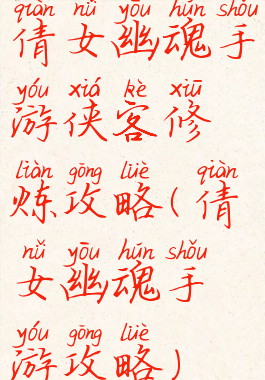 qiàn nǚ yōu hún shǒu
倩女幽魂手
yóu xiá kè xiū
游侠客修
liàn gōng lüè qiàn
炼攻略(倩
nǚ yōu hún shǒu
女幽魂手
yóu gōng lüè
游攻略)